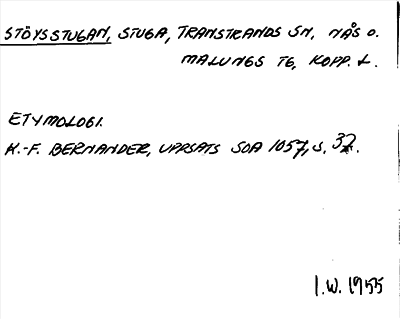 STÖYSSTUGAN, STUGA, TRANSTRANDS SN, NÅS O.
MALUNGS TG, KOPP. L.
ETYMOLOGI.
K.-F. BERNANDER, UPPSATS SOA 1057, S. 37.
I.W. 1955